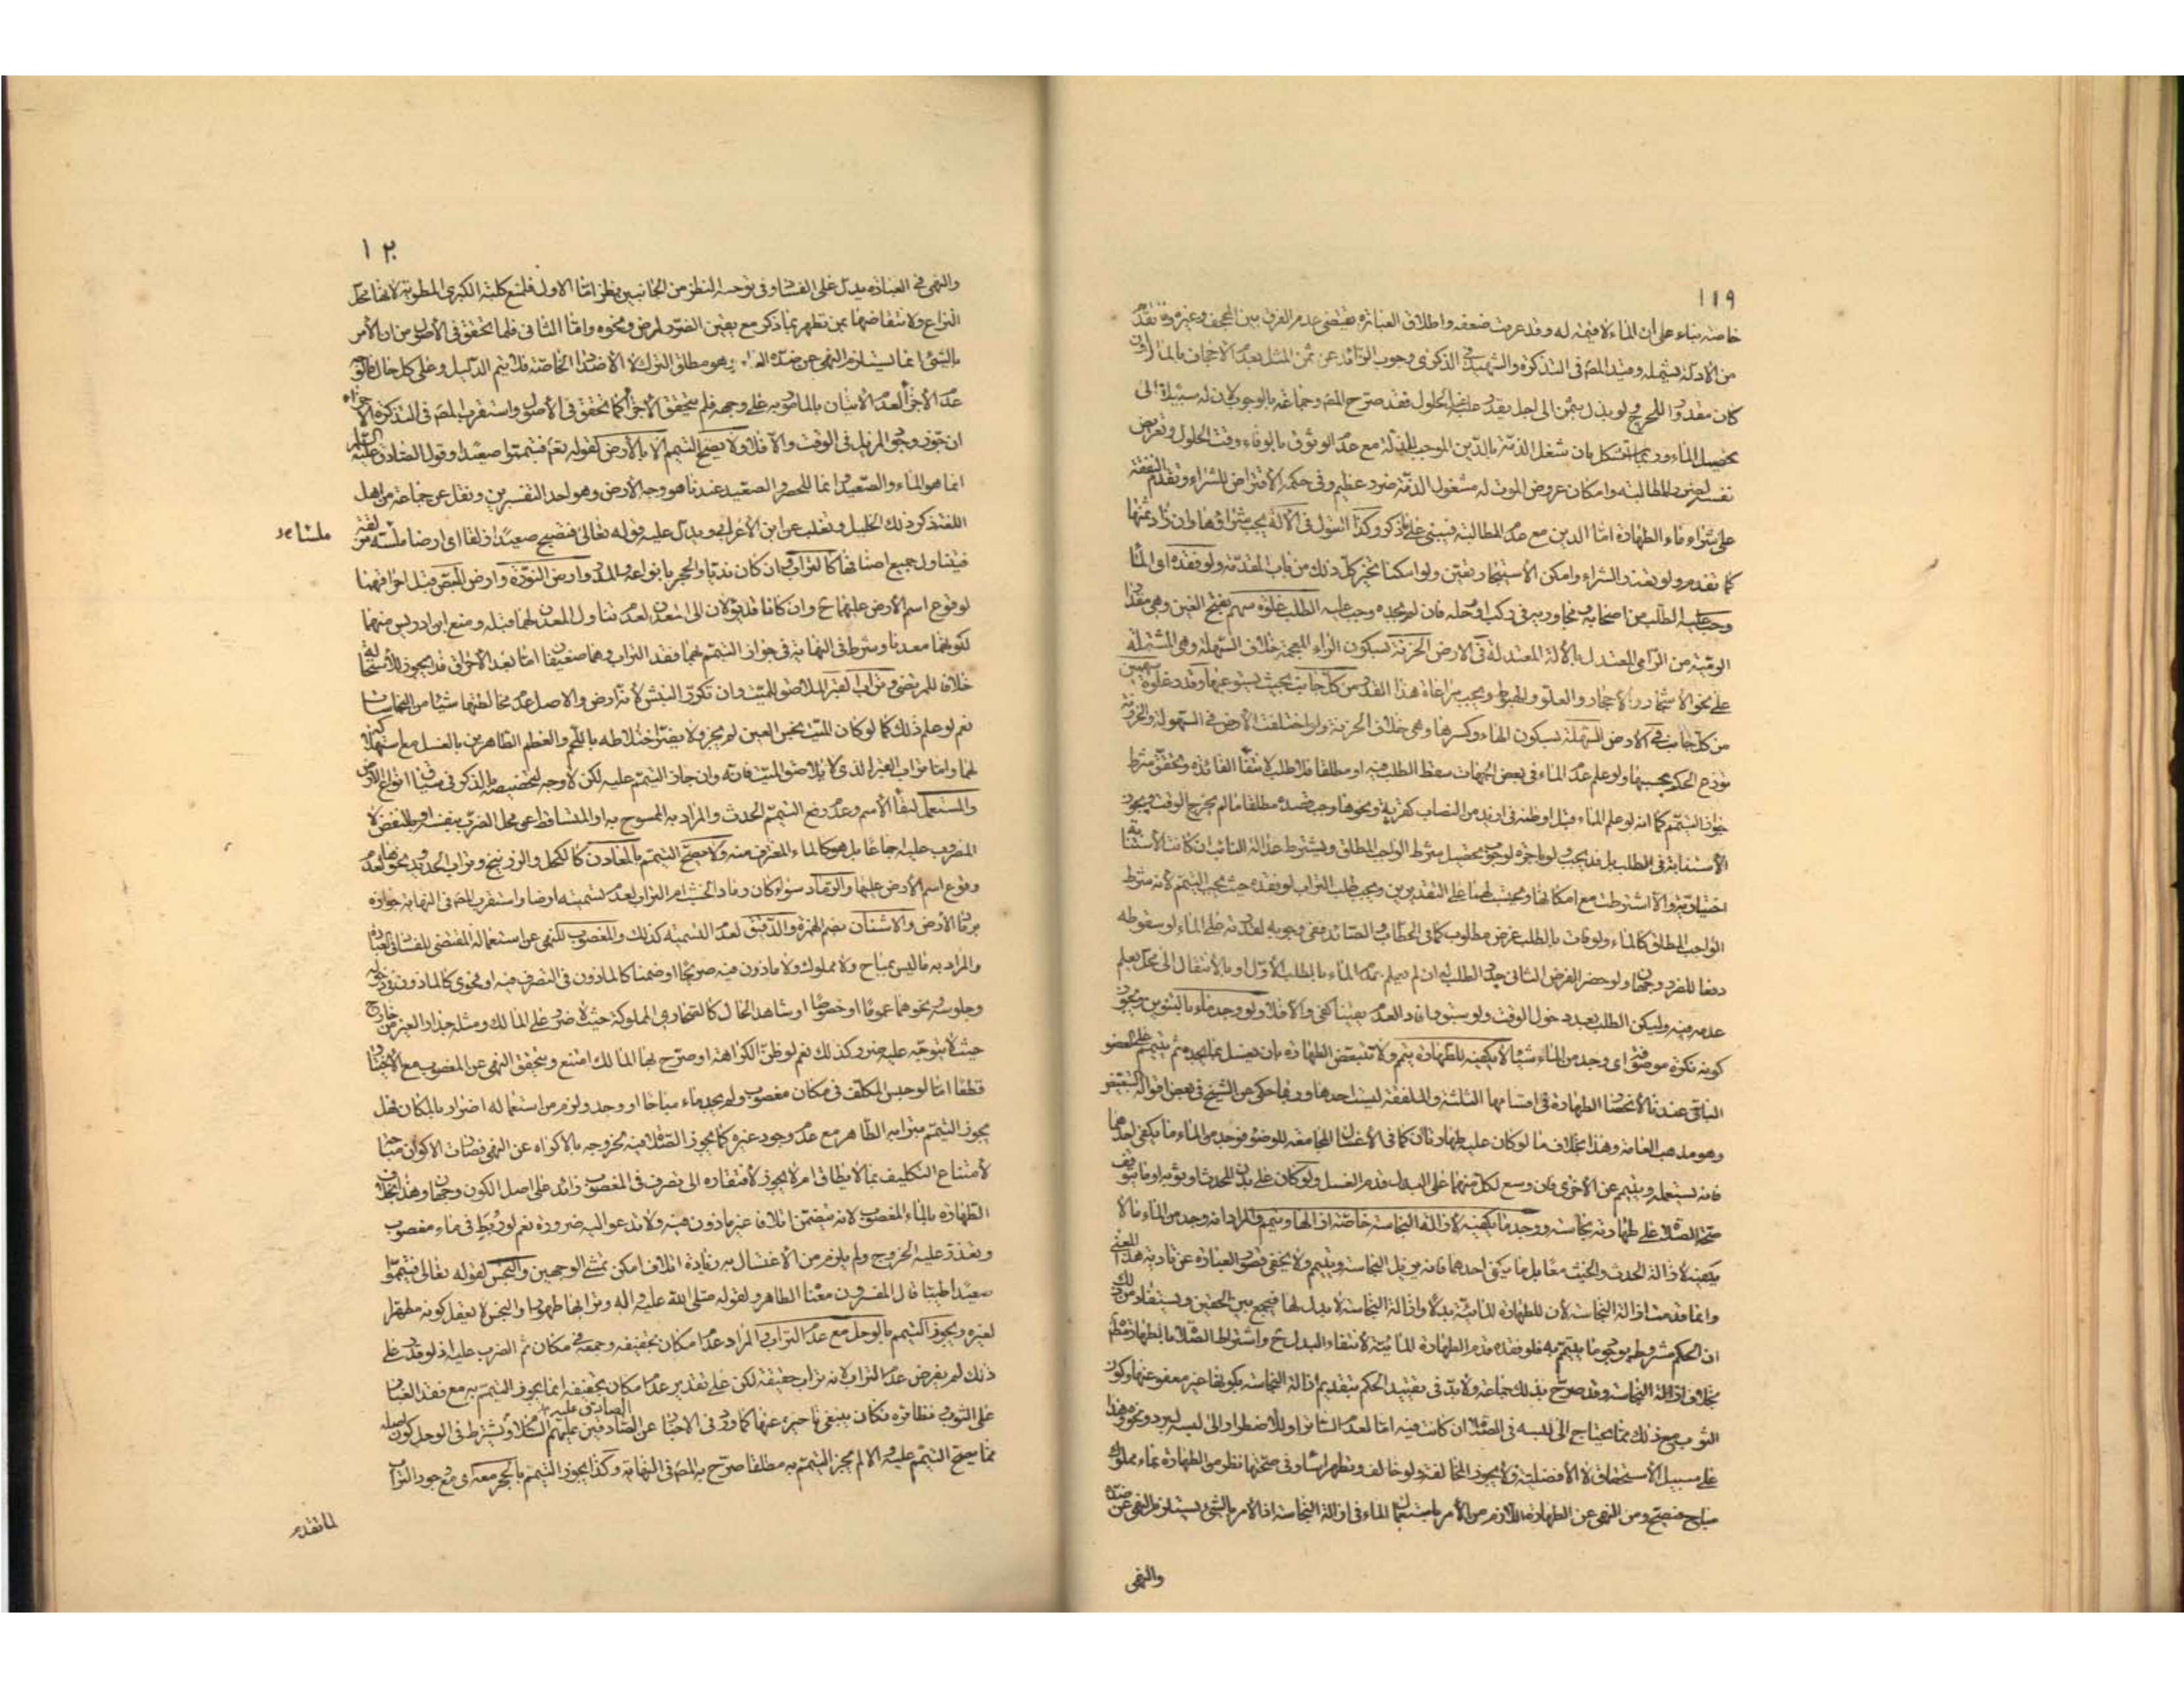 ١١٩
خاصة بناء على ان الماء لا قيمة له وقد عرفت ضعفه واطلاق العبارة يقتضي عدم الفرق بين المجحف وغيره وقد تقدم
من الادلة يشمله وقيد المص في التذكرة والشهيد في الذكرى وجوب الزائد عن ثمن المثل بعدم الاجحاف بالمال وان
كان مقدورا للحرج ولو بذل بثمن الى اجل يقدر عليه عند الحلول فقد صرح المص وجماعة بالوجوب لان له سبيلا الى
تحصيل الماء وربما استشكل بان شغل الذمة بالدين الموجب للمذلة مع عدم الوثوق بالوفاء وقت الحلول وتعريض
نفسه لضرر المطالبة وامكان عروض الموت له مشغول الذمة ضرر عظيم وفي حكمه الاقتراض للشراء وتقدم النفقة
على شراء ماء الطهارة اما الدين مع عدم المطالبة فيبنى على ما ذكر وكذا القول في الآلة يجب شراؤها وان زاد ثمنها
كما تقدم ولو تعذر الشراء وامكن الاستيجار تعين ولو امكنا تخير كل ذلك من باب المقدمة ولو فقده اي الماء
وجب عليه الطلب من اصحابه ومجاوريه في ركبه او محله فان لم يجده وجب عليه الطلب غلوة سهم بفتح الغين وهي مقدار
الرمية من الرامي المعتدل بالآلة المعتدلة في الارض الحزنة بسكون الزاء المعجمة خلاف السهلة وهي المشتملة
على نحو الاشجار والاحجار والعلو والهبوط ويجب مراعاة هذا القدر من كل جانب بحيث يستوعبها وقدر غلوة سهمين
من كل جانب في الارض السهلة بسكون الهاء وكسرها وهي خلاف الحزنة ولو اختلفت الارض في السهولة والحزونة
توزع الحكم بحسبها ولو علم عدم الماء في بعض الجهات سقط الطلب فيه او مطلقا فلا طلب لانتفاء الفائدة وتحقق شرط
جواز التيمم كما انه لو علم الماء قبل او ظنه في ازيد من النصاب كقرية ونحوها وجب قصده مطلقا ما لم يخرج الوقت ويجوز
الاستنابة في الطلب بل قد يجب ولو باجرة لوجوب تحصيل شرط الواجب المطلق ويشترط عدالة النائب ان كانت الاستنابة
اختيارية والا اشترطت مع امكانها ويحتسب لهما على التقديرين ويجب طلب التراب لو تعذر حيث يجب التيمم لانه شرط
الواجب المطلق كالماء ولو فات بالطلب غرض مطلوب كما في الحطاب والصائد ففي وجوبه لقدرته على الماء او سقوطه
دفعا للضرر وجهان ولو حضر الفرض الثاني جدد الطلب له ان لم يعلم عدم الماء بالطلب الاول او بالانتقال الى محل يعلم
عدمه فيه وليكن الطلب بعد دخول الوقت ولو سبق وافاد العدم يقينا كفى والا فلا ولو وجد ماء بالتنوين ويجوز
كونه نكرة موصوفة اي وجد من الماء شيئا لا يكفيه للطهارة يتيمم ولا تتبعض الطهارة بان يغسل بما يجده ثم يتيمم على العضو
الباقي عندنا لانحصار الطهارة في اقسامها الثلثة والملفقة ليست احدها وربما حكي عن الشيخ في بعض اقواله التبعيض
وهو مذهب العامة وهذا بخلاف ما لو كان عليه طهارتان كما في الاغسال المجامعة للوضوء فوجد من الماء ما يكفي احدهما
فانه يستعمله ويتيمم عن الاخرى فان وسع لكل منهما على البدل قدم الغسل ولو كان على بدن المحدث او ثوبه او ما يتوقف
صحة الصلاة على طهارته نجاسة ووجد ما يكفيه لازالة النجاسة خاصة ازالها وتيمم والمراد انه وجد من الماء ما لا
يكفيه لازالة الحدث والخبث معا بل ما يكفي احدهما فانه يزيل النجاسة ويتيمم ولا يخفى قصور العبارة عن تادية هذا المعنى
وانما قدمت ازالة النجاسة لان للطهارة المائية بدلا وازالة النجاسة لا بدل لها فيجمع بين الحقين ويستفاد من ذلك
ان الحكم مشروط بوجود ما يتيمم به فلو فقده قدم الطهارة المائية لانتفاء البدل ح واشتراط الصلاة بالطهارة مطلقا
بخلاف ازالة النجاسة وقد صرح بذلك جماعة ولا بد في تقييد الحكم بتقديم ازالة النجاسة بكونها غير معفو عنها وكون
الثوب مع ذلك مما يحتاج الى لبسه في الصلاة ان كانت فيه اما لعدم الساتر او للاضطرار الى لبسه لبرد ونحوه وهذا
على سبيل الاستحقاق لا الافضلية ولا يجوز المخالفة ولو خالف وتطهر اساء وفي صحتها نظر من الطهارة بماء مملوك
مباح فتصح ومن النهي عن الطهارة اللازم من الامر باستعمال الماء في ازالة النجاسة اذ الامر بالشيء يستلزم النهي عن ضده
والنهي
١٢٠
والنهي في العبادة يدل على الفساد وفي توجيه النظر من الجانبين نظر اما الاول فلمنع كلية الكبرى المطوية لانها محل
النزاع ولانتقاضها بمن تطهر بما ذكر مع تعين الضرر لمرض ونحوه واما الثاني فلما تحقق في الاصول من ان الامر
بالشيء انما يستلزم النهي عن ضده العام وهو مطلق الترك لا الاضداد الخاصة فلا يتم الدليل وعلى كل حال فالاقوى
عدم الاجزاء لعدم الاتيان بالمامور به على وجهه فلم يتحقق الاجزاء كما تحقق في الاصول واستقرب المص في التذكرة الاجزاء
ان جوز وجود المزيل في الوقت والا فلا ولا يصح التيمم الا بالارض كقوله تع فتيمموا صعيدا وقول الصادق عليه السلام
انما هو الماء والصعيد وانما للحصر والصعيد عندنا هو وجه الارض وهو احد التفسيرين ونقل عن جماعة من اهل
اللغة ذكر ذلك الخليل وثعلب عن ابن الاعرابي ويدل عليه قوله تعالى فتصبح صعيدا زلقا اي ارضا ملسة
فيتناول جميع اصنافها كالتراب وان كان نديا والحجر بانواعه والمدر وارض النورة وارض الجص قبل احراقهما
لوقوع اسم الارض عليهما ح وان كانا قد يؤلان الى المعدن لعدم تناول المعدن لهما قبله ومنع ابن ادريس منهما
لكونهما معدنا وشرط في النهاية في جواز التيمم بهما فقد التراب وهما ضعيفان اما بعد الاحراق فلا يجوز للاستحالة
خلافا للمرتضى وتراب القبر الملاصق للميت وان تكرر النبش لانه ارض والاصل عدم مخالطتها شيئا من النجاسات
نعم لو علم ذلك كما لو كان الميت نجس العين لم يجز ولا يضر اختلاطه باللحم والعظم الطاهرين بالغسل مع استهلاكه
لهما واما تراب القبر الذي لا يلاصق الميت فانه وان جاز التيمم عليه لكن لا وجه لتخصيصه بالذكر في سياق انواع الارض
والمستعمل لبقاء الاسم وعدم رفع التيمم الحدث والمراد به الممسوح به او المتساقط عن محل الضرب بنفسه او بالنفض لا
المضروب عليه اجماعا بل هو كالماء المغترف منه ولا يصح التيمم بالمعادن كالكحل والزرنيخ وتراب الحديد ونحوها لعدم
وقوع اسم الارض عليها والرماد سواء كان رماد الخشب ام التراب لعدم تسميته ارضا واستقرب المص في النهاية جوازه
برماد الارض والاشنان بضم الهمزة والدقيق لعدم التسمية كذلك والمغصوب للنهي عن استعماله المقتضي للفساد في العبادة
والمراد به ما ليس بمباح ولا مملوك ولا ماذون فيه صريحا او ضمنا كالماذون في التصرف فيه او فحوى كالماذون في دخوله
وجلوسه ونحوهما عموما او خصوصا او شاهد الحال كالصحاري المملوكة حيث لا ضرر على المالك ومثله جدار الغير من خارج
حيث لا يتوجه عليه ضرر وكذلك نعم لو ظن الكراهة او صرح بها المالك امتنع ويتحقق النهي عن المغصوب مع الاختيار
قطعا اما لو حبس المكلف في مكان مغصوب ولم يجد ماء مباحا او وجد ولزم من استعماله اضرار بالمكان فهل
يجوز التيمم بترابه الطاهر مع عدم وجود غيره كما يجوز الصلاة فيه لخروجه بالاكراه عن النهي فصارت الاكوان مباحة
لامتناع التكليف بما لا يطاق ام لا يجوز لافتقاره الى تصرف في المغصوب زائد على اصل الكون وجهان وهذا بخلاف
الطهارة بالماء المغصوب لانه يتضمن اتلافا غير ماذون فيه ولا تدعو اليه ضرورة نعم لو ربط في ماء مغصوب
وتعذر عليه الخروج ولم يلزم من الاغتسال به زيادة اتلاف امكن تمشي الوجهين والنجس لقوله تعالى فتيمموا
صعيدا طيبا قال المفسرون معناه الطاهر ولقوله صلى الله عليه واله وترابها طهورا والنجس لا يعقل كونه مطهرا
لغيره ويجوز التيمم بالوحل مع عدم التراب والمراد عدم امكان تجفيفه وجمعه في مكان ثم الضرب عليه اذ لو قدر على
ذلك لم يفرض عدم التراب لانه تراب حقيقة لكن على تقدير عدم امكان تجفيفه انما يجوز التيمم به مع فقد الغبار
على الثوب ونظائره فكان ينبغي تاخيره عنها كما ورد في الاخبار عن الصادقين عليهم السلام ويشترط في الوحل كون اصله
مما يصح التيمم عليه والا لم يجز التيمم به مطلقا صرح به المص في النهاية وكذا يجوز التيمم بالحجر معه اي مع وجود التراب
لما تقدم